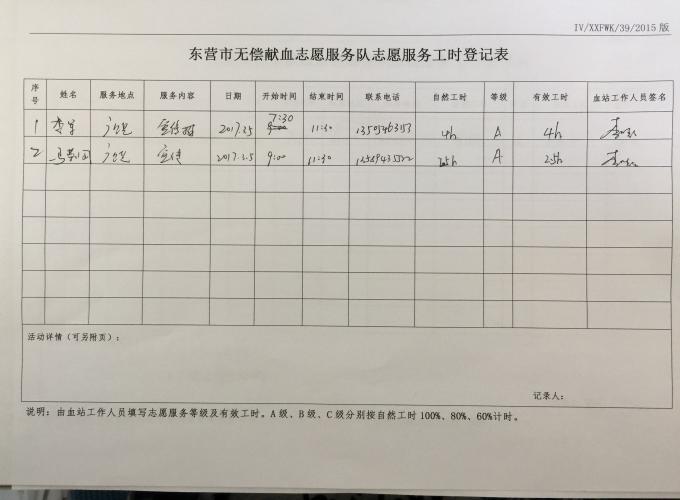 IV/XXFWK/39/2015版
东营市无偿献血志愿服务队志愿服务工时登记表
序号 姓名 服务地点 服务内容 日期 开始时间 结束时间 联系电话 自然工时 等级 有效工时 血站工作人员签名
1 2017.3.5 7:30 11:30 4h A 4h
2 宣传 2017.3.5 9:00 11:30 2.5h A 2.5h
活动详情（可另附页）：
记录人：
说明：由血站工作人员填写志愿服务等级及有效工时。A级、B级、C级分别按自然工时100%、80%、60%计时。